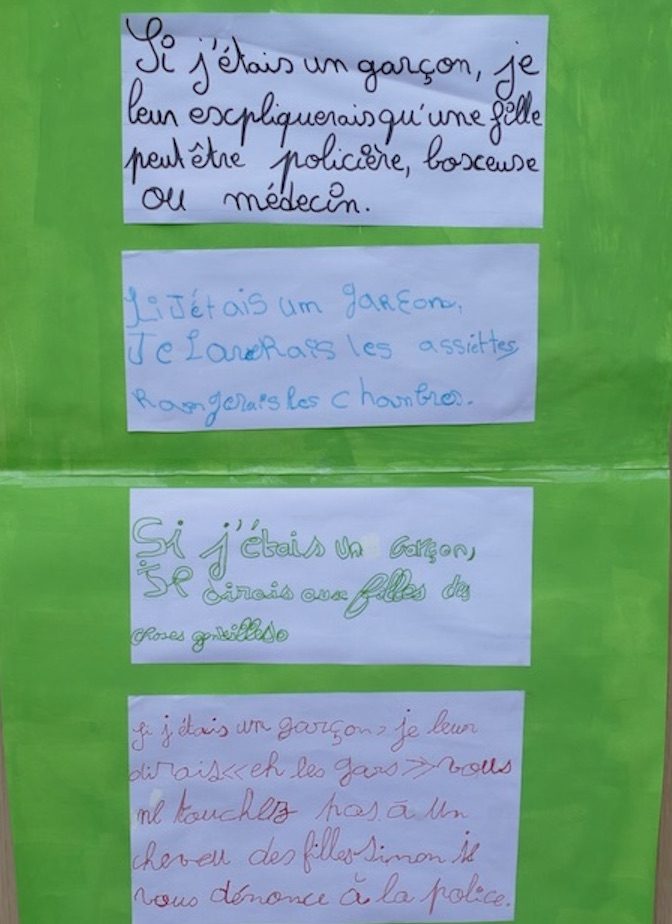 Si j'étais un garçon, je
leur escpliquerais qu'une fille
peut être policière, boxceuse
ou médecin.
Si J'étais um garçon.
Je Laverais les assiettes
Rangerais les chambres.
Si j'étais un garçon,
Je dirais aux filles des
choses gentilles.
si j'étais un garçon, je leur
dirais «eh les gars» vous
ne touchez pas à un
cheveu des filles simon je
vous dénonce à la police.